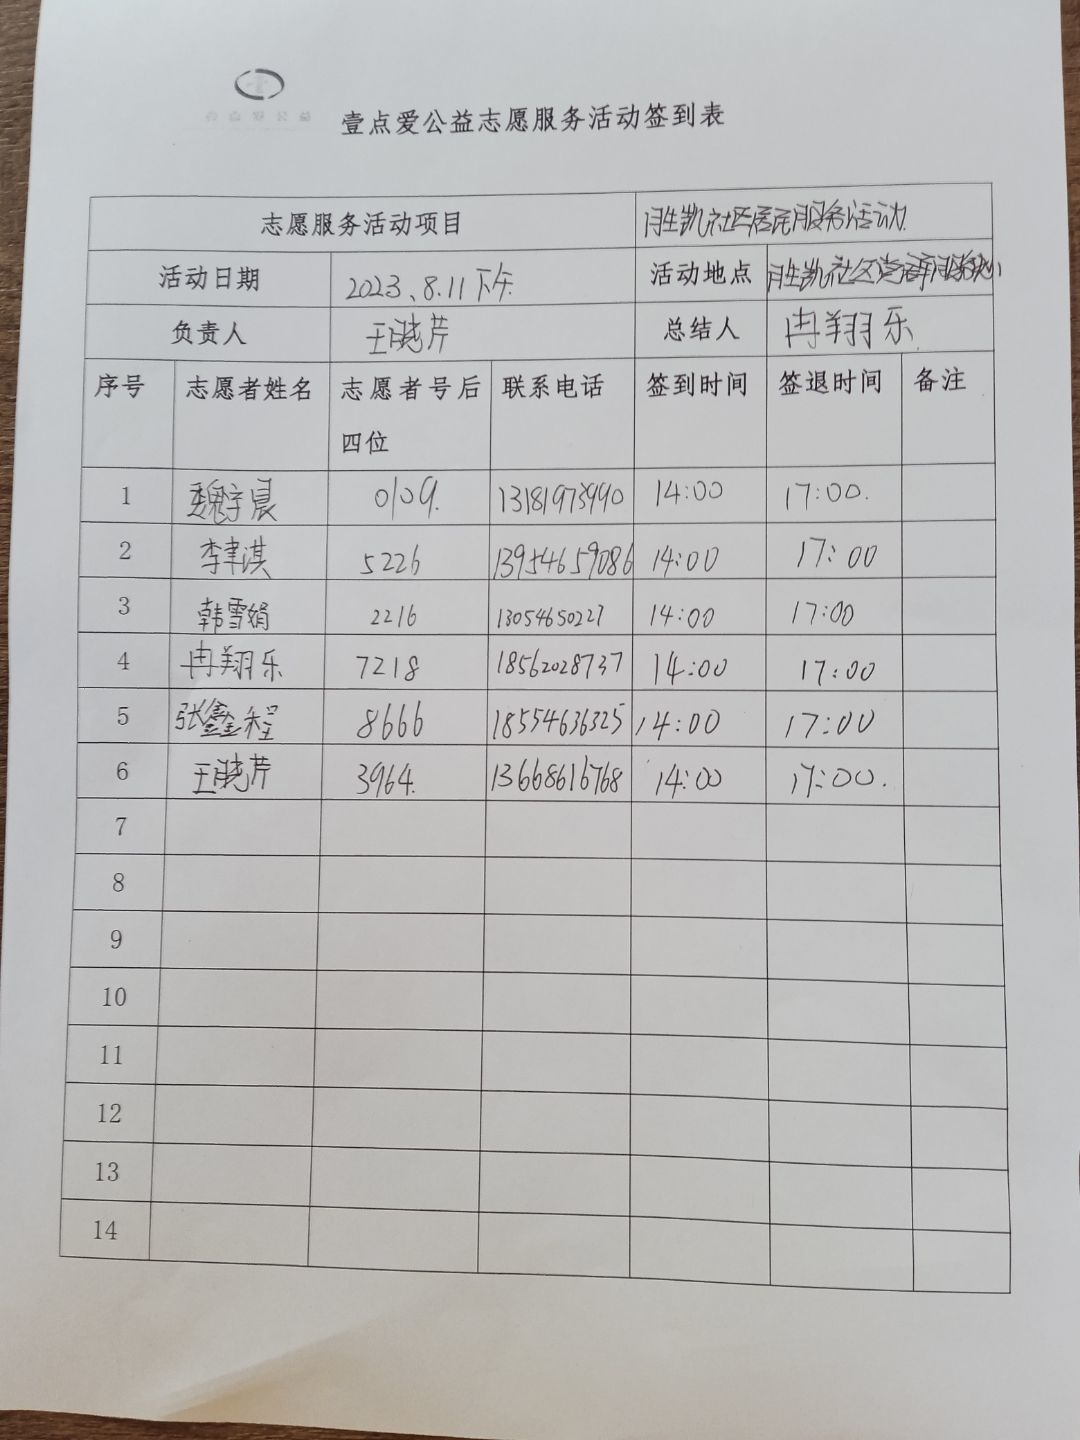 壹点爱公益志愿服务活动签到表
志愿服务活动项目 胜凯社区居民服务活动
活动日期 2023、8.11下午 活动地点 胜凯社区党群服务
负责人 王晓芹 总结人 冉翔乐
序号 志愿者姓名 志愿者号后四位 联系电话 签到时间 签退时间 备注
1 魏宇晨 0109. 13181973990 14:00 17:00.
2 李聿淇 5226 13954659086 14:00 17:00
3 韩雪娟 2216 13054650227 14:00 17:00
4 冉翔乐 7218 18562028737 14:00 17:00
5 张鑫程 8666 18554636325 14:00 17:00
6 王晓芹 3964. 13668616768 14:00 17:00.
7
8
9
10
11
12
13
14